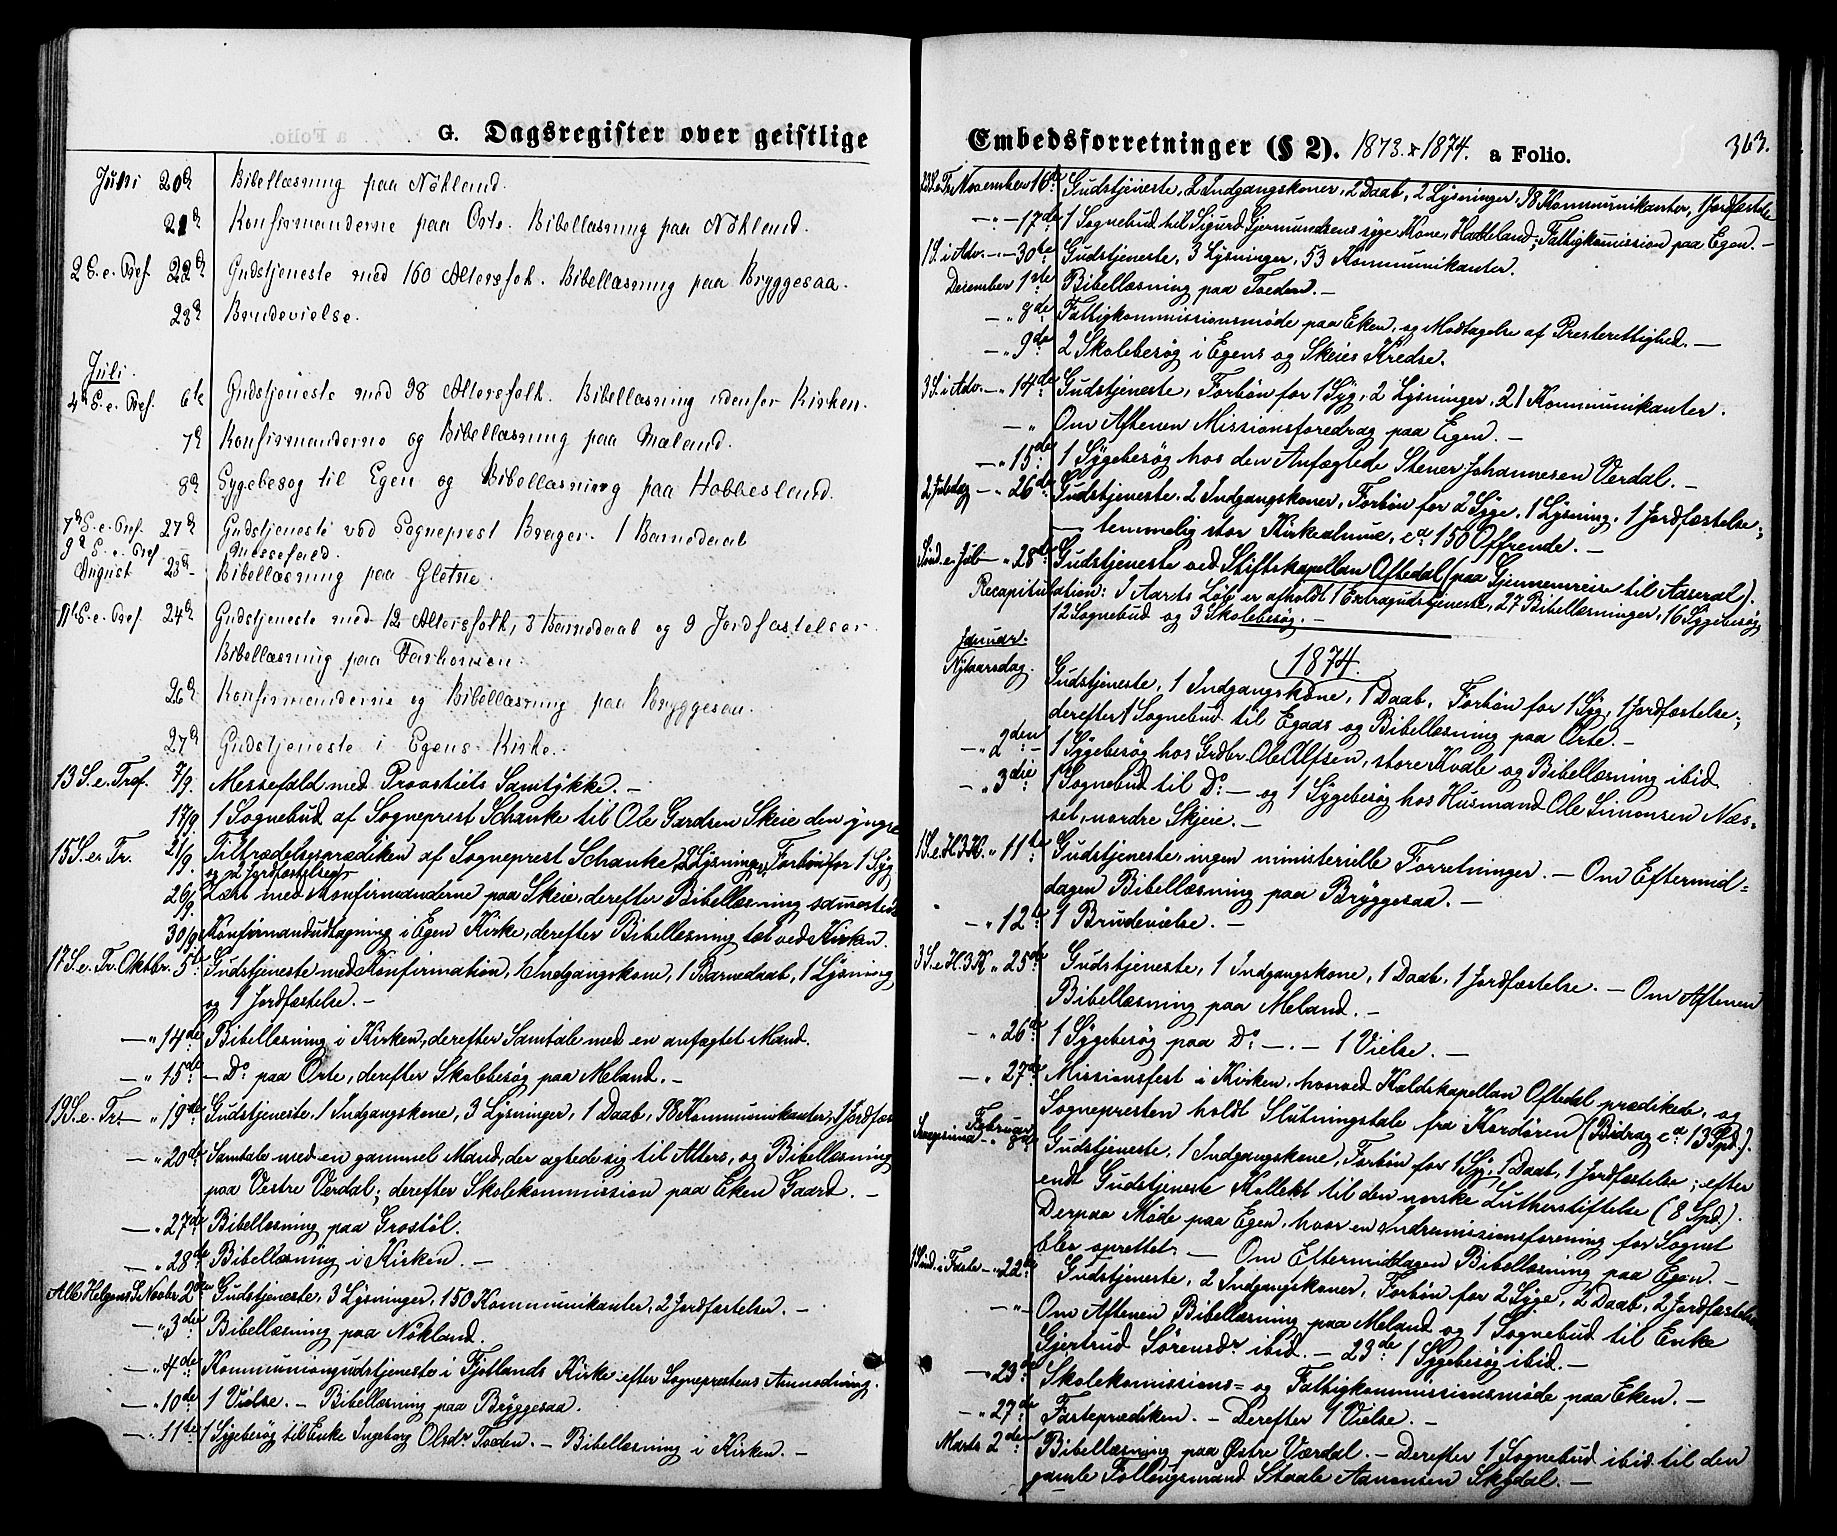 G. Dagsregister over geistlige
Juni 20d Bibellæsning paa Nökland.
21d Konfirmanderne paa Orte. Bibellæsning paa Nökland.
2 S. e. Tref. 22d Gudstjeneste med 160 Altersfolk. Bibellæsning paa Bryggesaa.
23d Brudevielse.
Juli.
4d S. e. Tref. 6te Gudstjeneste med 98 Altersfolk. Bibellæsning udenfor Kirken.
7d Konfirmanderne og Bibellæsning paa Mæland.
8d Sygebesög til Egen og Bibellæsning paa Hobbesland.
7d S. e. Tref. 27d Gudstjeneste ved Sogneprest Brager. 1 Barnedaab
9d S. e. Tref. — Messefald.
August 23d — Bibellæsning paa Gletne.
11te S. e. Tref. 24d Gudstjeneste med 12 Altersfolk, 3 Barnedaab og 9 Jordfæstelser.
Bibellæsning paa
26d Konfirmanderne og Bibellæsning paa Bryggesaa.
27d Gudstjeneste i Egens Kirke.
13 S. e. Tref. 7/9. Messefald med Provstiets Samtykke. —
17/9 1 Sognebud af Sogneprest Schanke til Ole Gardsen Skeie den yngre
15 S. e. Tr. 21/9. Tiltrædelsesprædiken af Sogneprest Schanke, 2 Lysninger, Forbön for 1 Syg
og 2 Jordfæstelser
26/9. Læst med Konfirmanderne paa Skeie, derefter Bibellæsning sammesteds
30/9. Konfirmandudtagning i Egen Kirke, derefter Bibellæsning tæt ved Kirken.
17 S. e. Tr. Oktbr. 5te Gudstjeneste med Konfirmation, 1 Indgangskone, 1 Barnedaab, 1 Lysning
og 1 Jordfæstelse. —
— " 14de Bibellæsning i Kirken, derefter Samtale med en anfægtet Mand.
— " 15de — Do paa Orte, derefter Skolebesøg paa Meland. —
19 S. e. Tr. — " 19de Gudstjeneste, 1 Indgangskone, 3 Lysninger, 1 Daab, 98 Kommunikanter, 1 Jordfæs
— " 20de Samtale med en gammel Mand, der agtede sig til Alters, og Bibellæsning
paa Vestre Verdal; derefter Skolekommission paa Eken Gaard. —
— " 27de Bibellæsning paa Grostöl.
— " 28de Bibellæsning i Kirken. —
Alle Helgens S. Novbr. 2den Gudstjeneste, 3 Lysninger, 150 Kommunikanter, 2 Jordfæstelser. —
— " 3die Bibellæsning paa Nökland.
— " 4de Kommuniongudstjeneste i Fjotlands Kirke efter Sogneprestens Anmodning.
— " 10de 1 Vielse. — Bibellæsning paa Bryggesaa.
— " 11te 1 Sygebesøg til Enke Ingeborg Olsdr Toeden. — Bibellæsning i Kirken. —
Embedsforretninger (§ 2). 1873. & 1874. a Folio. 363.
23 S. e. Tr. November 16de Gudstjeneste, 2 Indgangskoner, 2 Daab, 2 Lysninger, 98 Kommunikanter, 1 Jordfæstelse
— " — 17de 1 Sognebud til Sigurd Gjermundsens syge Kone, Hatteland; Fattigkomission paa Egen. —
1 S. i Adv. — " 30te Gudstjeneste, 3 Lysninger, 53 Kommunikanter.
Desember 1ste Bibellæsning paa Toeden. —
— " 8de Fattigkommissionsmöde paa Eken, og Modtagelse af Presterettighed. —
— " 9de 2 Skolebesøg i Egens og Skeies Kredse.
3 S. i Adv. — " 14de Gudstjeneste, Forbön for 1 Syg, 2 Lysninger, 21 Kommunikanter.
— " Om Aftenen Missionsforedrag paa Egen. —
— " 15de 1 Sygebesøg hos den Anfægtede Stener Johannesen Verdal. —
2 Juledag — " 26de Gudstjeneste, 2 Indgangskoner, Forbön for 2 Syge, 1 Lysning, 1 Jordfæstelse;
— temmelig stor Kirkealmue, ca 150 Offrende. —
Sönd. e. Jul — " 28de Gudstjeneste ved Stiftskapellan Oftedal (paa Gjennemreise til Aaseral).
Recapitulation: I Aarets Löb er afholdt 1 Extragudstjeneste, 27 Bibellæsninger, 16 Sygebesøg,
12 Sognebud og 3 Skolebesøg. —
1874.
Januar.
Nytaarsdag. Gudstjeneste, 1 Indgangskone, 1 Daab, Forbön for 1 Syg, 1 Jordfæstelse;
derefter 1 Sognebud til Egaas og Bibellæsning paa Orte. —
— " 2den 1 Sygebesøg hos Grdbr. Ole Olfsen, store Kvale og Bibellæsning ibid.
— " 3die 1 Sognebud til Do — og 1 Sygebesøg hos Husmand Ole Simonsen Næs-
set, nordre Skjeie. —
1 S. e. H. 3 K. " 11te Gudstjeneste, ingen ministerielle Forretninger. — Om Eftermid=
dagen Bibellæsning paa Bryggesaa. —
— " 12te 1 Brudevielse. —
3 S. e. H. 3 K. " 25de Gudstjeneste, 1 Indgangskone, 1 Daab, 1 Jordfæstelse. — Om Aftenen
Bibellæsning paa Meland. —
— " 26de 1 Sygebesøg paa Do — . — 1 Vielse. —
— " 27de Missionsfest i Kirken, hvorved Kaldskapellan Oftedal prædikede, og
Sognepresten holdt Slutningstale fra Kordören (Bidrag ca 13 Spd.).
Februar
Sexagesima — " 8de Gudstjeneste, 1 Indgangskone, Forbön for 1 Syg, 1 Daab, 1 Jordfæstelse; efter
endt Gudstjeneste Kollekt til den norske Lutherstiftelse (8 Spd.).
Derpaa Möde paa Egen, hvor en Indremissionsforening for Sognet
blev oprettet. — Om Eftermiddagen Bibellæsning paa Egen. —
1 Sönd. i Faste — " 22de Gudstjeneste, 2 Indgangskoner, Forbön for 2 Syge, 2 Daab, 2 Jordfæstelser
— " — Om Aftenen Bibellæsning paa Meland og 1 Sognebud til Enke
Gjertrud Sörensdr ibid. — 23de 1 Sygebesøg ibid. —
— " 23de Skolekomissions= og Fattigkommissionsmöde paa Eken. —
— " 27de Fasteprædiken. — Derefter 1 Vielse. —
Marts 2den Bibellæsning paa Østre Værdal. — Derefter 1 Sognebud ibid. til den
gamle Follougsmand Staale Aanonsen Skeidal. —